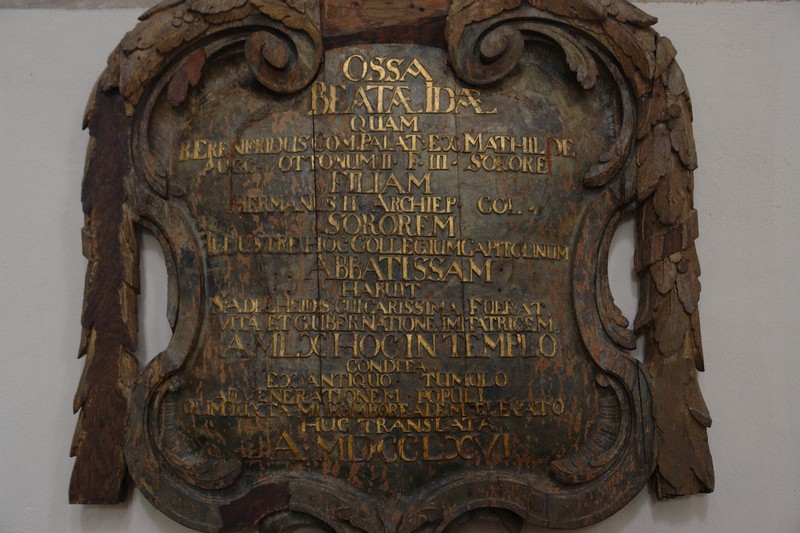 OSSA
BEATÆ IDÆ
QUAM
BERENFRIDUS COM. PALAT. EX MATHILDE
AUGG. OTTONUM II. E III. SORORE
FILIAM
HERMANUS II ARCHIEP. COL.
SOROREM
ILLUSTRE HOC COLLEGIUM CAPITOLINUM
ABBATISSAM
HABUIT
S. ADELHEIDIS CUI CARISSIMA FUERAT
VITA ET GUBERNATIONE IMITATRICEM
A. MLX HOC IN TEMPLO
CONDITA
EX ANTIQUO TUMULO
AD VENERATIONEM POPULI
OLIM IUXTA BOREALEM ELEVATO
HUC TRANSLATA
A. MDCCLXXVI